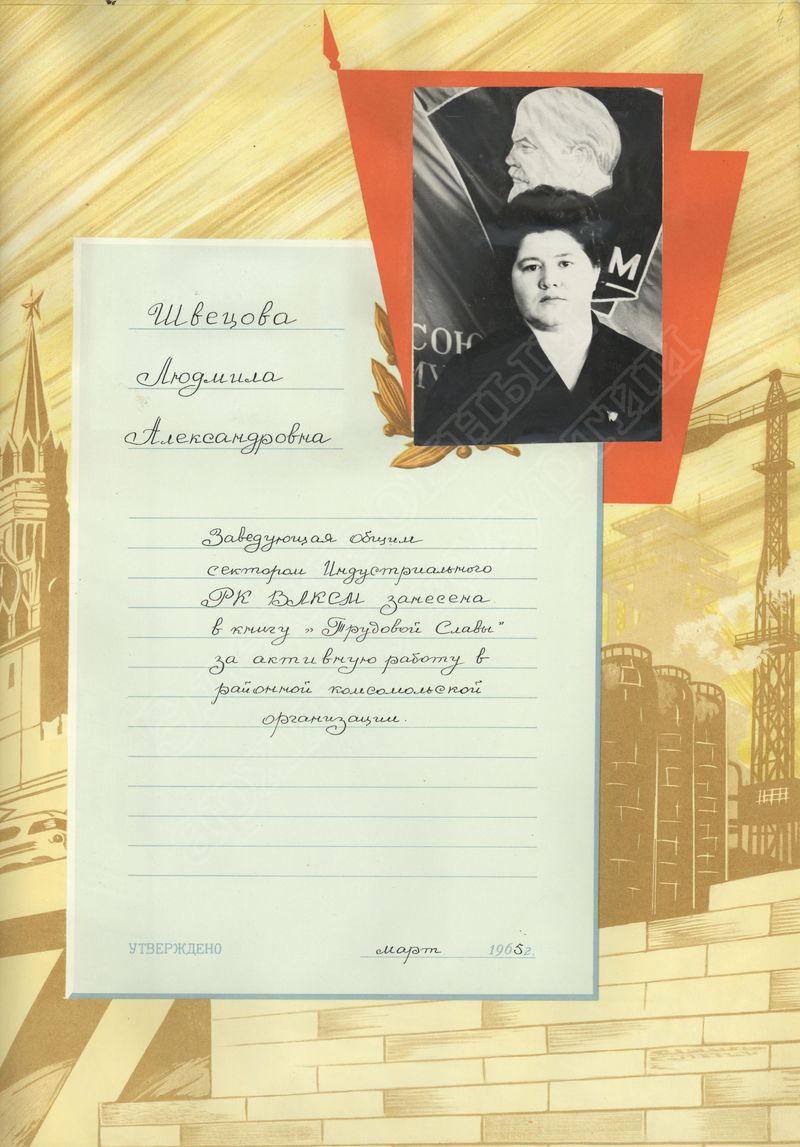 М
СОЮ
Швецова
Людмила
Александровна
Заведующая общим
сектором Индустриального
РК ВЛКСМ занесена
в книгу „Трудовой Славы"
за активную работу в
районной комсомольской
организации.
УТВЕРЖДЕНО март 1965г.